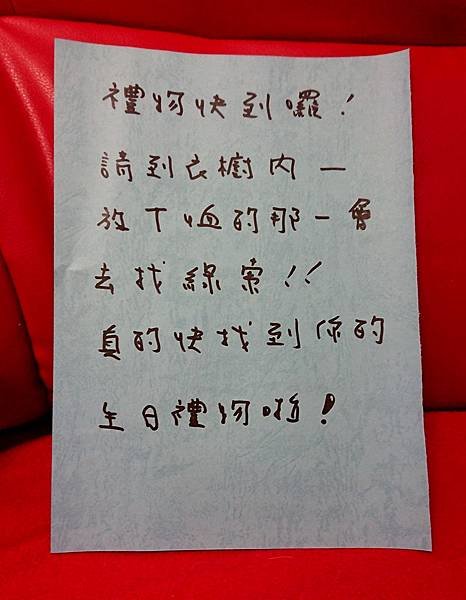 禮物快到囉!
請到衣櫥內一
放T恤的那一層
去找線索!!
真的快找到你的
生日禮物啦!